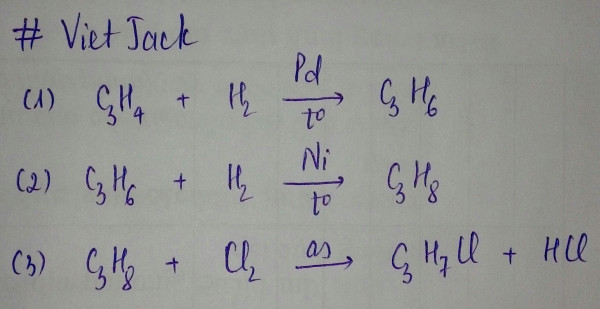 # VietJack
(1) C₃H₄ + H₂ \xrightarrow[t°]{Pd} C₃H₆
(2) C₃H₆ + H₂ \xrightarrow[t°]{Ni} C₃H₈
(3) C₃H₈ + Cl₂ \xrightarrow{as} C₃H₇Cl + HCl